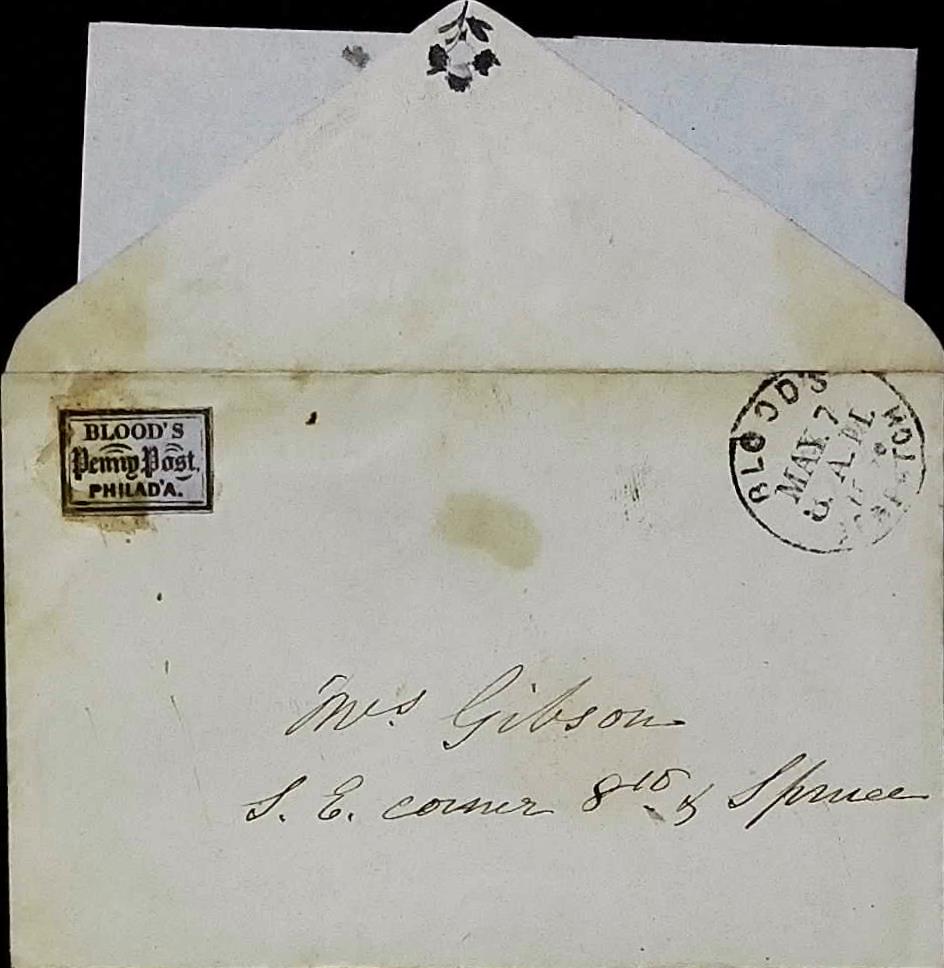 BLOOD'S
Penny Post,
PHILAD'A.
BLOOD'S
MAY 7
Mrs Gibson
S. E. corner 8th & Spruce